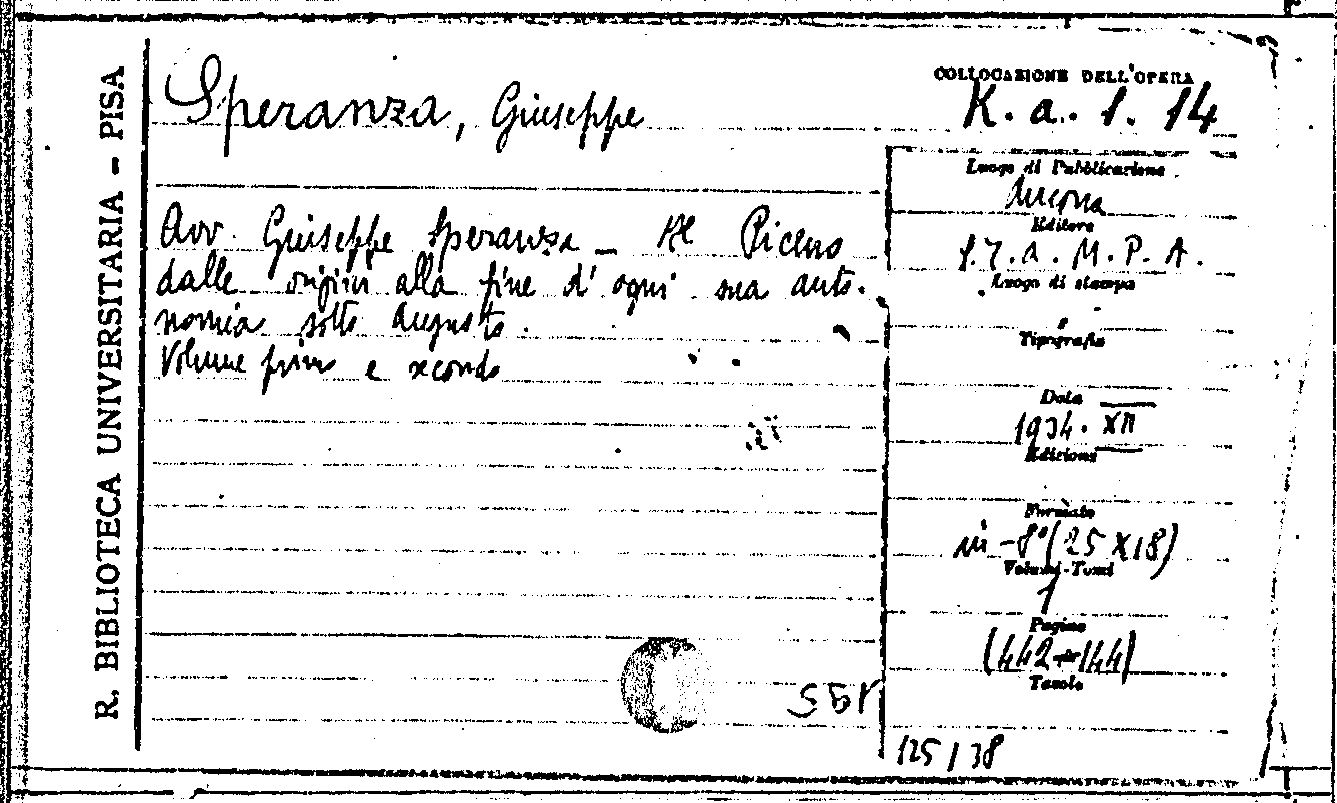 R. BIBLIOTECA UNIVERSITARIA - PISA
Speranza, Giuseppe
COLLOCAZIONE DELL'OPERA
K. a. 1. 14
Avv. Giuseppe Speranza - Il Piceno
dalle origini alla fine d'ogni sua auto-
nomia sotto Augusto.
Volume primo e secondo
Luogo di Pubblicazione
Ancona
Editore
S.T.A.M.P.A.
Luogo di stampa
Tipografia
Data
1934. XII
Edizione
Formato
in-8°(25X18)
Volumi-Tomi
1
Pagine
(442+144)
Tavole
125/38